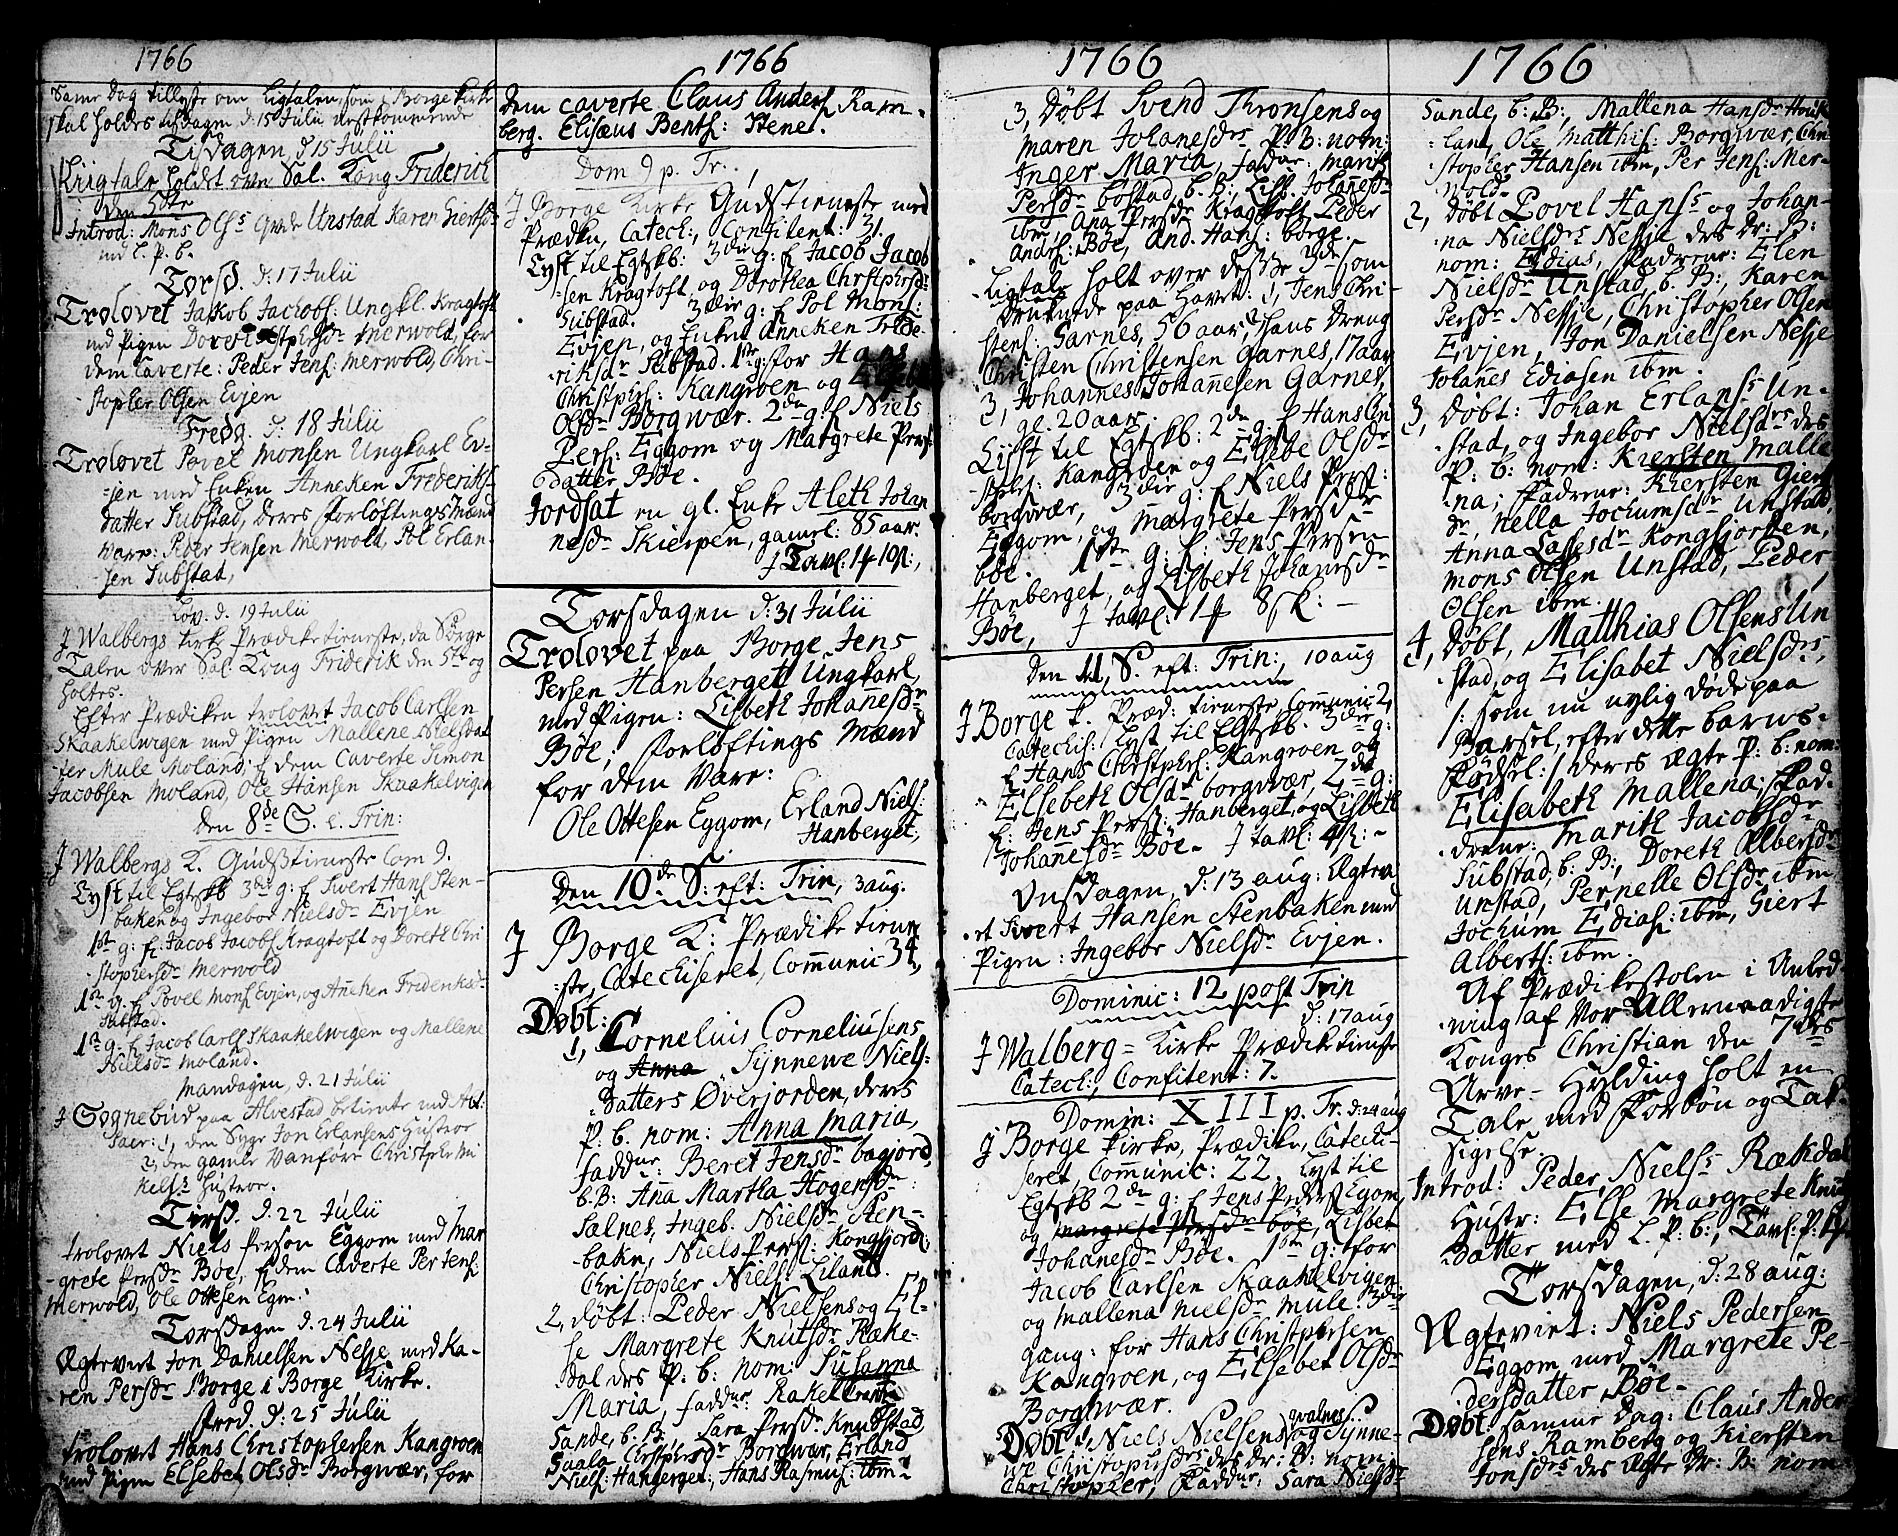 1766
Same Dag tillyste om Ligtalen, som i Borge Kirke
skal holdes tisdagen d: 15 Julii nestkommende
Tisdagen, d. 15 Julii
holdet over Sal. Kong Friderich
den 5te
Introd: Mons Ols: Unstad Karen Giertsdr
L. P. b.
Torsd. d. 17 Julii
Troløvet Jakob Jachobs: Ungkl. Kragtoft
med Pigen Merwold, for
dem Caverte: Peder Jens: Merwold, Chri-
stopher Olsen Evjen
Fredg. d: 18 Julii
Troløvet Povel Monsen Ungkarl Ev-
jen med Enken Anneken Frederiks
datter Substad, deres Forløftings Mænd
Vare: Peder Jensen Merwold, Pol Erlan-
sen Substad,
Løv. d. 19 Julii
J Walbergs Kirk Prædiketieneste, da Sørge
Talen over Sal. Kong Friderik den 5te og
holtes.
Efter Prædiken trolovet Jacob Carlsen
Skaakelwigen med Pigen Mallene Nielsdat
ter Mule Moland; f dem Caverte Simon
Jacobsen Moland, Ole Hansen Skaakelvigen
den 8de S. e. Trin:
J Walbergs K. Gudstieneste Com 9.
Lyst til Egtskb 3die g: f Sivert Hans Sten-
baken og Ingebor Nielsdr Evjen
1ste g: f: Jacob Jacobs Kragtoft og Doreth Chri
stophersdr Merwold
1ste g. f Povel Mons Evjen, og Anneken Friderikd-
Substad.
1ste g: f Jacob Carls Skaakelwigen og Mallene
Nielsdr Moland.
Mandagen, d. 21 Julii
J Sognebud paa Alvestad betiente med Alt:
Saer: 1, den Syge Jon Erlansens Hustroe
2, den gamle Vanføre Christophr Mi
kels: Hustroe.
Tirsd. d. 22 Julii
trolovet Niels Person Eggom med Mar
grete Persdr Bøe, f dem Caverte Per Jens:
Merwold, Ole Ottesen Egm:
Torsdagen d. 24 Julii
Ægtevirt Jon Danielsen Nesje med Ka-
ren Persdr Borge i Borge Kirke.
Fred. d: 25 Julii
trolovet Hans Christophersen Kangroen
med Pigen Elsebet Olsdr Borgwær, for
1766
dem caverte Claus Anders Ram-
berg. Elisæus Bents: Stene.
Dom 9 p. Tr.
J Borge Kirke Gudstieneste med
Prædiken, Catech:, Confitent: 31.
Lyst til Egtskb: 3die g: f Jacob Jacob
sen Kragtoft og Dorothea Christphersdr
Substad. 3die g: f Pol Mons:
Evjen, og Enken Anneken Frede-
riksdr Substad. 1ste g: for Hans
Christphers: Kangroen og
Olsdr Borgwær. 2den g: f Niels
Pers: Eggom og Margrete Pers
datter Bøe.
Jordsat en gl. Enke Aleth Johan
nesdr Skierpen, gamel: 85 aar.
J Tavl:
Torsdagen d: 31 Julii
Troløvet paa Borge Jens
Persen Hanberget Ungkarl,
med Pigen: Lisbeth Johannesdr
Bøe; Forløftings Mænd
for dem Vare:
Ole Ottesen Eggom, Erland Niels:
Hanberget,
Den 10de S: eft: Trin, 3 aug.
J Borge K: Prædiketiene
ste, Catechiseret, Communic 34,
Døbt:
1, Cornelius Corneliusens
og Synnewe Niels:
datters Øverjorden, deres
P. b. nom: Anna Maria,
faddr: Beret Jensdr bøgjord,
b. B: Ana Martha Hogensdr
Salnes, Ingeb. Nielsdr Sten-
bakn, Niels Pers: Kongsjord,
Christopher Niels: Liland.
2, døbt: Peder Nielsens og El-
se Margrete Knutsdr Ræke-
dal drs P. b. nom: Susanna
Maria, faddr: Rakel
Sande, b. B., Sara Persdr Knudstad
Saala Christphersdr Borgwær, Erland
Niels: Hangerget, Hans Rasmus: ibm:
1766
3, Døbt Svend Thronsens og
Maren Johanesdr P. B: nom:
Inger Maria, faddr: Marit
Persdr bostad, b. B: Lisb. Johanesdr
ibm, Ana Persdr Kragtoft, Peder
Anders: Bøe, And. Hans: borge.
Ligtale holt over desse 3de som
druknede paa Havet: 1, Jens Chri-
stens: Garnes, 56 aar, 2, hans Dreng
Christen Christensen Garnes, 17 aar
3, Johannes Johanesen Garnes,
gl. 20 aar.
Lyst til Egtskb: 2den g: f Hans Chri
stphs: Kangroen og Elsebe Olsdr
borgwær, 3die g: f Niels Pers:
Eggom, og Margrete Persdr
bøe. 1ste g: f: Jens Persen
Hanberget, og Lisbeth Johanesdr
Bøe, J tavl: 8 sk: -
Den 11, S. eft: Trin:, 10 aug
J Borge K. Præd: tieneste, Communic 2,
Catechis: Lyst til Egtskb. 3die g:
f Hans Christphers: Kangroen og
Elsebeth Olsdr borgwær, 2de g:
f: Jens Pers: Hanberget, og Lisbeth
Johanesdr Bøe. J tavl:
Onsdagen, d: 13 aug: Ægtevi
et Sivert Hansen Stenbaken med
Pigen: Ingebor Nielsdr Evjen.
Dominic: 12 post Trin
d: 17 aug
J Walberg = Kirke Prædiketieneste
Catech:, Confitent: 7.
Domin: XIII p. Tr. d: 24 aug
J Borge Kirke, Prædiken, Catechi-
seret, Communic: 22. Lyst til
Egtskb 2den g: f Jens Peders Egom,
og Margrete Persdr bøe, Lisbet
Johanesdr Bøe. 1ste g: for
Jacob Carlsen Skaakelvigen
og Mallena Nielsdr Mule. 3die
gang: for Hans Christphersen
Kangroen, og Elsebet Olsdr
Borgwær.
Døbt 1, Niels Nielsens og Synne-
we Christophersdrs drs dr: B: nom
Christopher, Faddr: Sara Nielsdr
1766
Sande, b: B:, Mallena Hansdr Houk
land, Ole Matthis: Borgwær, Chri
stopher Hansen ibm, Per Jens: Mer-
wold.
2, døbt Povel Hanss og Johan-
na Nielsdrs Nesje drs Dr: B:
nom: Edias, Fadrene: Elen
Nielsdr Unstad, b. B:, Karen
Persdr Nesje, Christopher Olsen
Evjen, Jon Danielsen Nesje
Johanes Ediasen ibm.
3, døbt: Johan Erlanss Un-
stad, og Ingebor Nielsdrs des
P. b: nom: Kiersten Malle
na; Fadrene: Kiersten Giert
dr, Nella Jochumsdr Unstad,
Anna Lassesdr Kongsjorden,
Mons Olsen Unstad, Peder
Olsen ibm.
4, døbt, Matthias Olsens Un
stad, og Elisabet Nielsdrs,
/: som nu nylig døde paa
Barsel, efter dette barns
Fødsel:/ deres ægte P: b: nom:
Elisabeth Mallena; Fad-
drene: Marith Jacobsdr
Substad, b: B:, Doreth Albersdr
Unstad, Pernelle Olsdr ibm
Jochum Edias: ibm, Giert
Alberts: ibm.
Af Prædikestolen i Anled-
ning af Vor Allernaadigste
Konges Christian den 7des
Arve- Hylding holt en
Tale med Forbøn og Tak-
sigelse.
Introd: Peder Nielss Rækdal
Hustr: Else Margrete Knud
datter med L. P: b:, Tavl:
Torsdagen, d: 28 aug:
Ægtevirt: Niels Pedersen
Eggom, med Margrete Pe-
dersdatter Bøe.
Døbt samme dag: Claus Ander
sens Ramberg og Kiersten
Jonsdrs drs Ægte Dr: B: nom: